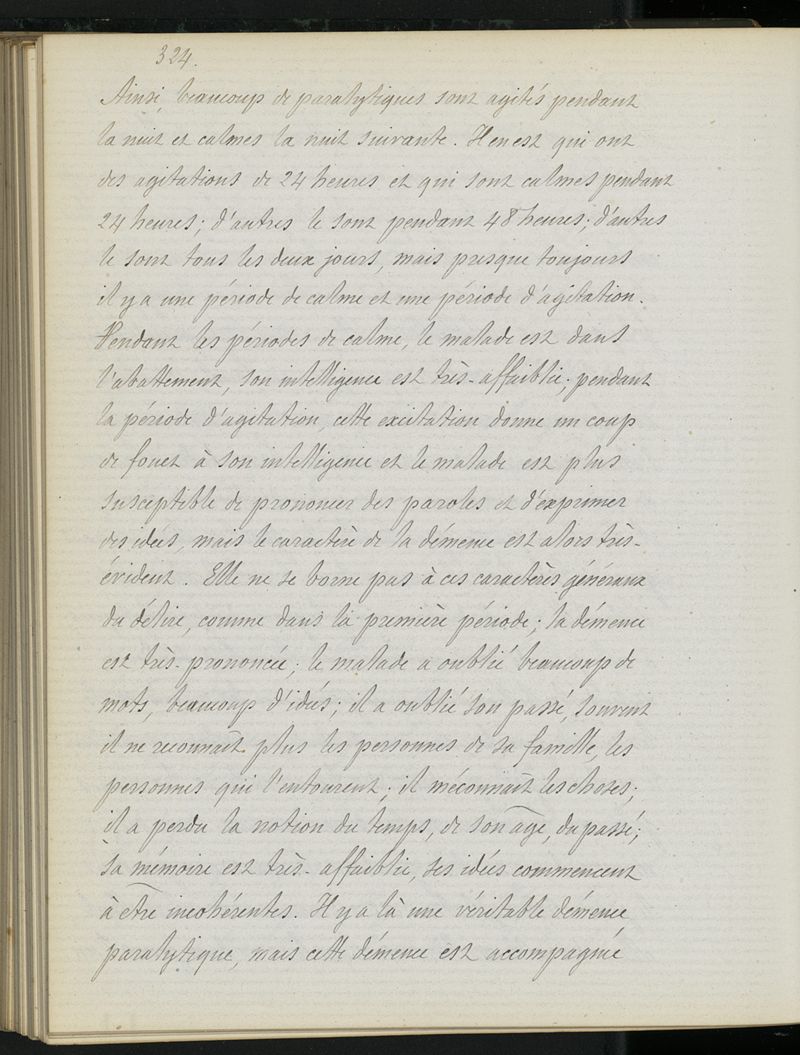 324.
Ainsi, beaucoup de paralytiques sont agités pendant
la nuit et calmes la nuit suivante. Il en est qui ont
des agitations de 24 heures et qui sont calmes pendant
24 heures; d'autres le sont pendant 48 heures; d'autres
le sont tous les deux jours, mais presque toujours
il y a une période de calme et une période d'agitation.
Pendant les périodes de calme, le malade est dans
l'abattement, son intelligence est très-affaiblie; pendant
la période d'agitation, cette excitation donne un coup
de fouet à son intelligence et le malade est plus
susceptible de prononcer des paroles et d'exprimer
des idées, mais le caractère de la démence est alors très-
évident. Elle ne se borne pas à ces caractères généraux
du délire, comme dans la première période; la démence
est très-prononcée; le malade a oublié beaucoup de
mots, beaucoup d'idées; il a oublié son passé, souvent
il ne reconnaît plus les personnes de sa famille, les
personnes qui l'entourent; il méconnaît les choses;
il a perdu la notion du temps, de son âge, du passé;
sa mémoire est très-affaiblie, ses idées commencent
à être incohérentes. Il y a là une véritable démence
paralytique, mais cette démence est accompagnée